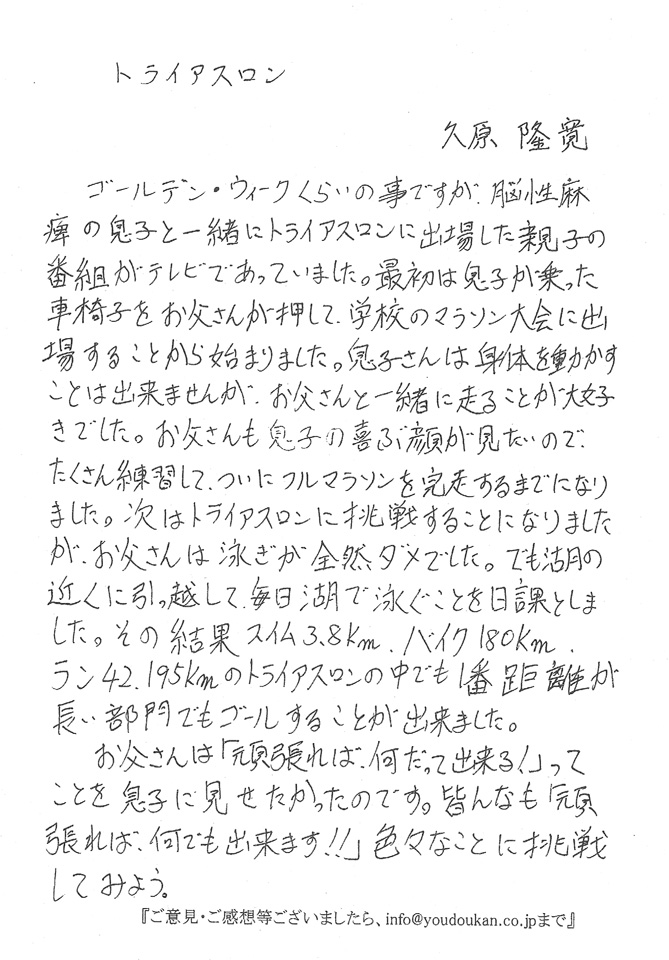 トライアスロン
久原 隆寛
ゴールデン・ウィークくらいの事ですが、脳性麻
痺の息子と一緒にトライアスロンに出場した親子の
番組がテレビであっていました。最初は息子が乗った
車椅子をお父さんが押して、学校のマラソン大会に出
場することから始まりました。息子さんは身体を動かす
ことは出来ませんが、お父さんと一緒に走ることが大好
きでした。お父さんも息子の喜ぶ顔が見たいので、
たくさん練習して、ついにフルマラソンを完走するまでになり
ました。次はトライアスロンに挑戦することになりました
が、お父さんは泳ぎが全然ダメでした。でも湖の
近くに引っ越して、毎日湖で泳ぐことを日課としま
した。その結果スイム3.8km、バイク180km、
ラン42.195kmのトライアスロンの中でも1番距離が
長い部門でもゴールすることが出来ました。
お父さんは「頑張れば、何だって出来る!」って
ことを息子に見せたかったのです。皆んなも「頑
張れば、何でも出来ます!!」色々なことに挑戦
してみよう。
『ご意見・ご感想等ございましたら、info@youdoukan.co.jpまで』